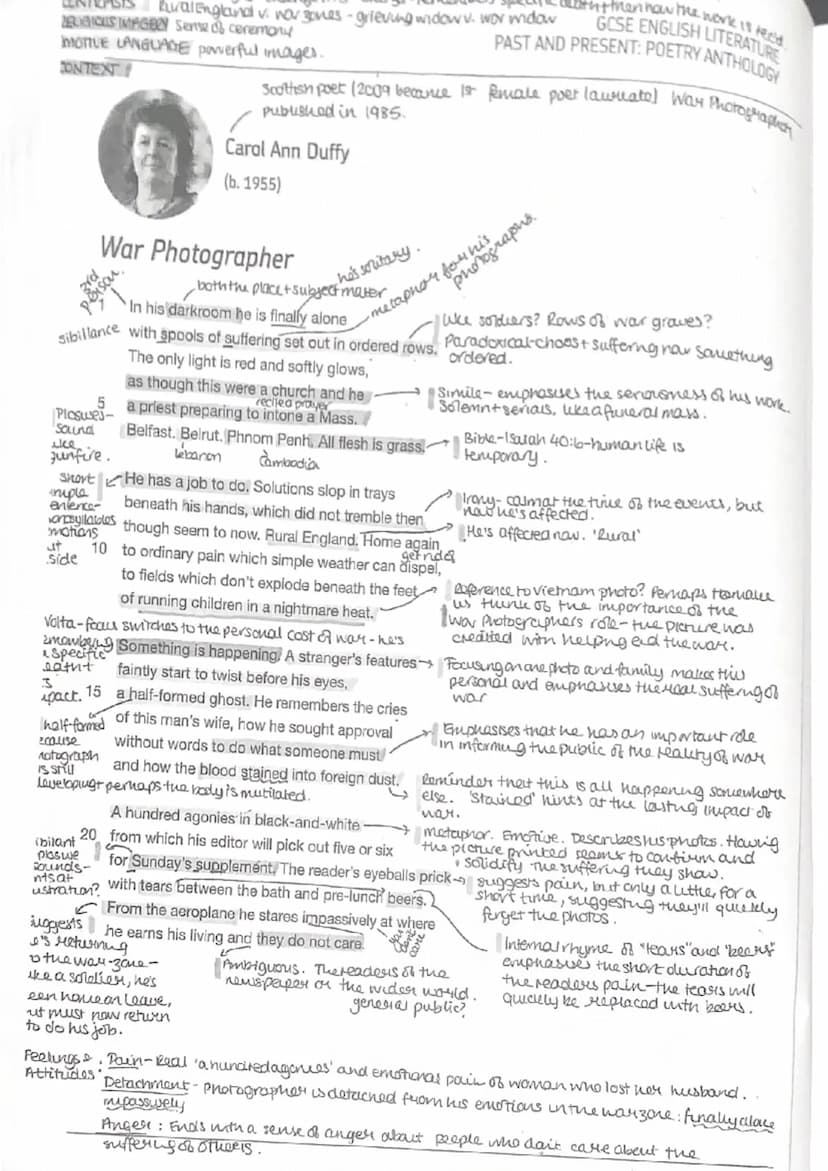 CONTRASTS Rural England v. war zones - grieving widow v. war widow
RELIGIOUS IMAGERY Sense of ceremony
EMOTIVE LANGUAGE powerful images.
GCSE ENGLISH LITERATURE
PAST AND PRESENT: POETRY ANTHOLOGY
CONTEXT!
Scottish poet (2009 became 1st female poet laureate) War Photographer
published in 1985.
Carol Ann Duffy
(b. 1955)
War Photographer
3rd person.
both the place + subject matter
he's solitary.
metaphor for his photographs.
1 In his darkroom he is finally alone
sibilance
with spools of suffering set out in ordered rows.
like soldiers? Rows of war graves?
Paradoxical-chaos + suffering now something
ordered.
The only light is red and softly glows,
as though this were a church and he
Simile - emphasises the seriousness of his work.
solemn + serious, like a funeral mass.
recite a prayer
5 a priest preparing to intone a Mass.
Belfast. Beirut. Phnom Penh. All flesh is grass.
Lebanon
Cambodia
Bible-Isaiah 40:6-human life is
temporary.
Plosives-
sound
like
gunfire.
He has a job to do. Solutions slop in trays
short
beneath his hands, which did not tremble then
Irony - calm at the time of the events, but
now he's affected.
though seem to now. Rural England. Home again
He's affected now. 'Rural'
get rid of
10 to ordinary pain which simple weather can dispel,
to fields which don't explode beneath the feet
of running children in a nightmare heat.
Reference to Vietnam photo? Perhaps to make
us think of the importance of the
war photographers role - the picture was
credited with helping end the war.
Volta-focus switches to the personal cost of war - he's
a specific
Something is happening. A stranger's features
faintly start to twist before his eyes,
Focusing on one photo and family makes this
personal and emphasises the real suffering of
war
15 a half-formed ghost. He remembers the cries
of this man's wife, how he sought approval
without words to do what someone must
Emphasises that he has an important role
in informing the public of the reality of war
and how the blood stained into foreign dust.
half-formed
is still
developing + perhaps the body is mutilated.
Reminder that this is all happening somewhere
else. 'Stained' hints at the lasting impact of
war.
A hundred agonies in black-and-white
20 from which his editor will pick out five or six
metaphor. Emotive. Describes his photos. Having
the picture printed seems to confirm and
solidify the suffering they show.
for Sunday's supplement. The reader's eyeballs prick
with tears between the bath and pre-lunch beers.
suggests pain, but only a little, for a
short time, suggesting they'll quickly
forget the photos.
plosive
sounds-
From the aeroplane he stares impassively at where
he earns his living and they do not care.
Internal rhyme of "tears" and "beers"
emphasises the short duration of
the readers pain - the tears will
quickly be replaced with beers.
Ambiguous. The readers of the
newspaper or the wider world.
general public?
suggests
he's returning
to the war-zone-
like a soldier, he's
been home on leave,
but must now return
to do his job.
Feelings & Attitudes:
Pain - Real 'a hundred agonies' and emotional pain of woman who lost her husband.
Detachment - photographer is detached from his emotions in the war zone: finally alone
impassively
Anger: Ends with a sense of anger about people who don't care about the
suffering of others.